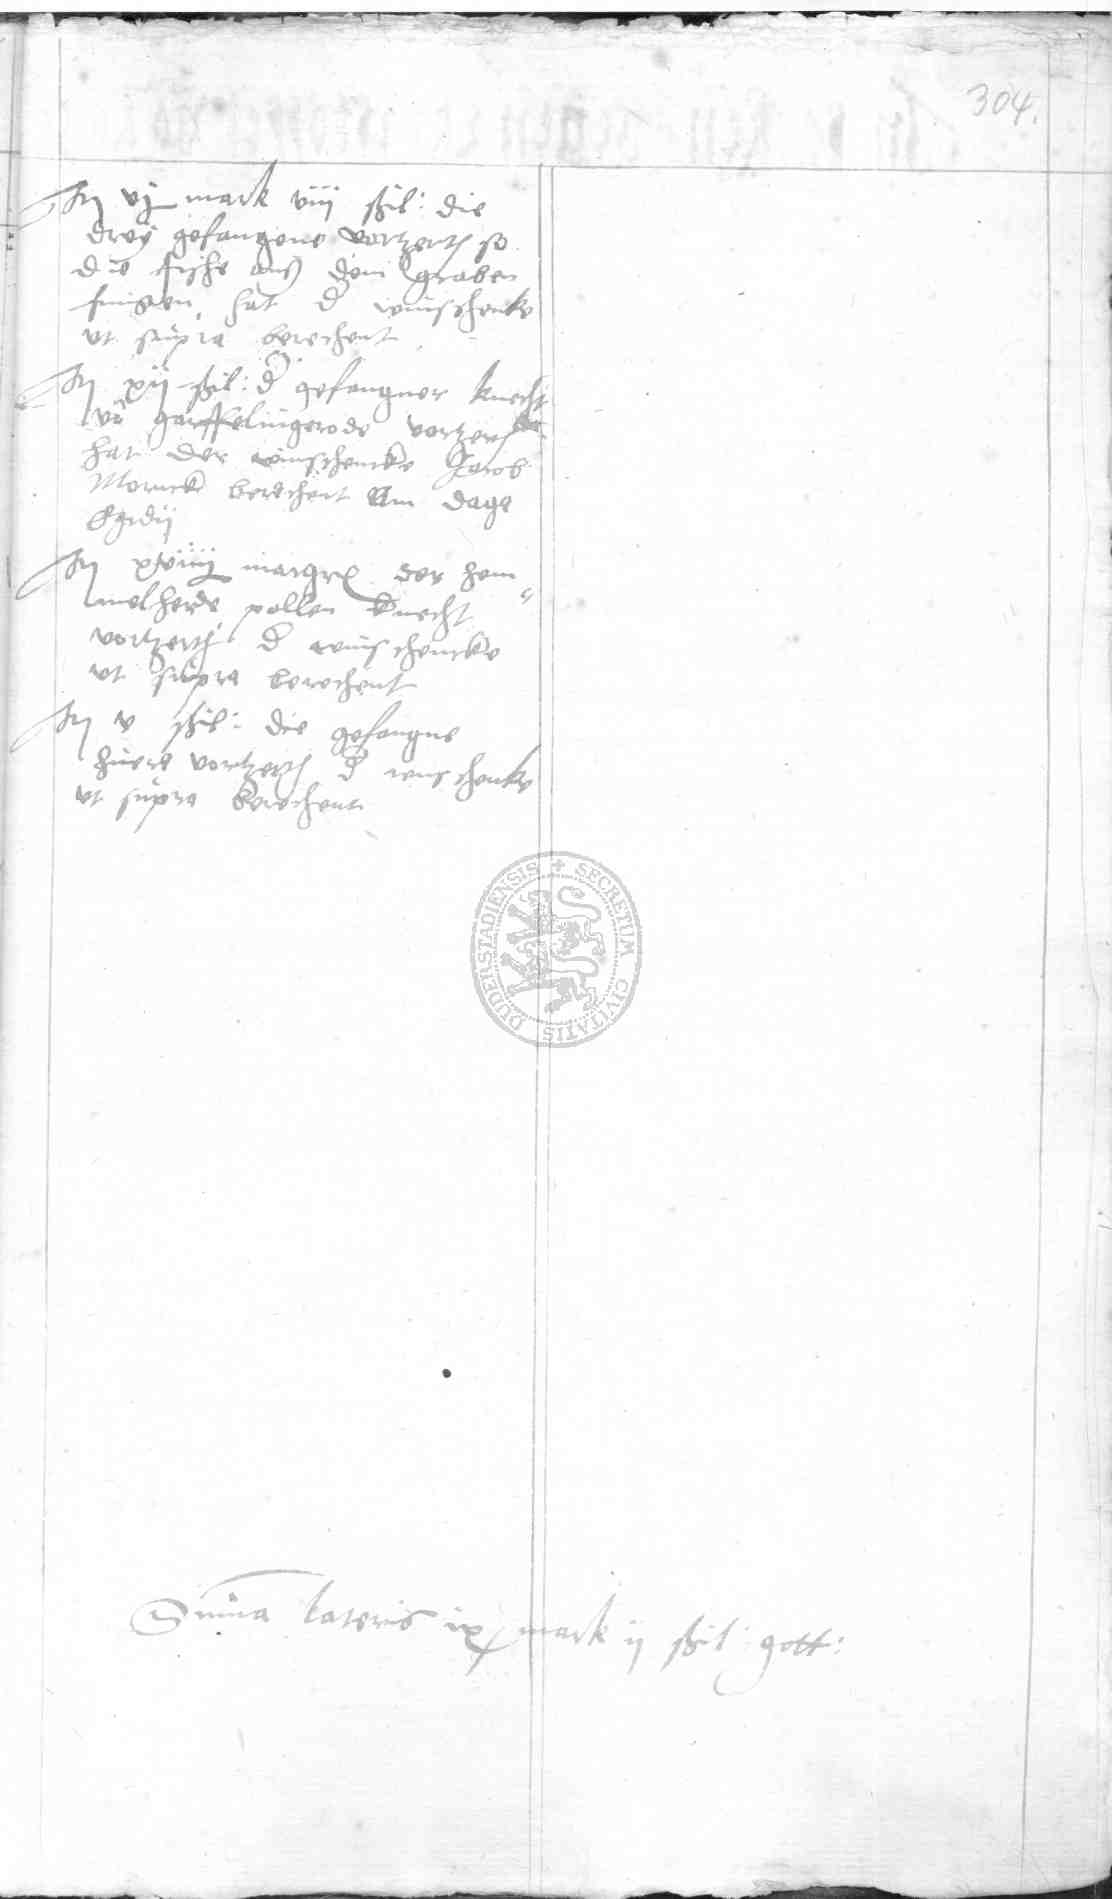 304.
Itz vj mark viij ßil: die
drey gefangene vortzert so
die fische aus dem graben
fingen hat d' winschenke
ut supra berechent
Itz xij ßil: d' gefangner knecht
vo garttelingerode vortzert
hat der winschencke Jacob
Morick berechent Am dage
Egidij
Itz margr der ham
melherde pollen knecht
vortzert d' winschencke
ut supra berechent
Itz v ßil: die gefangne
huere vortzert d' winschenke
ut supra berechent
SECRETUM CIVITATIS DUDERSTADIENSIS
Suma lateris ix mark ij ßil gott: